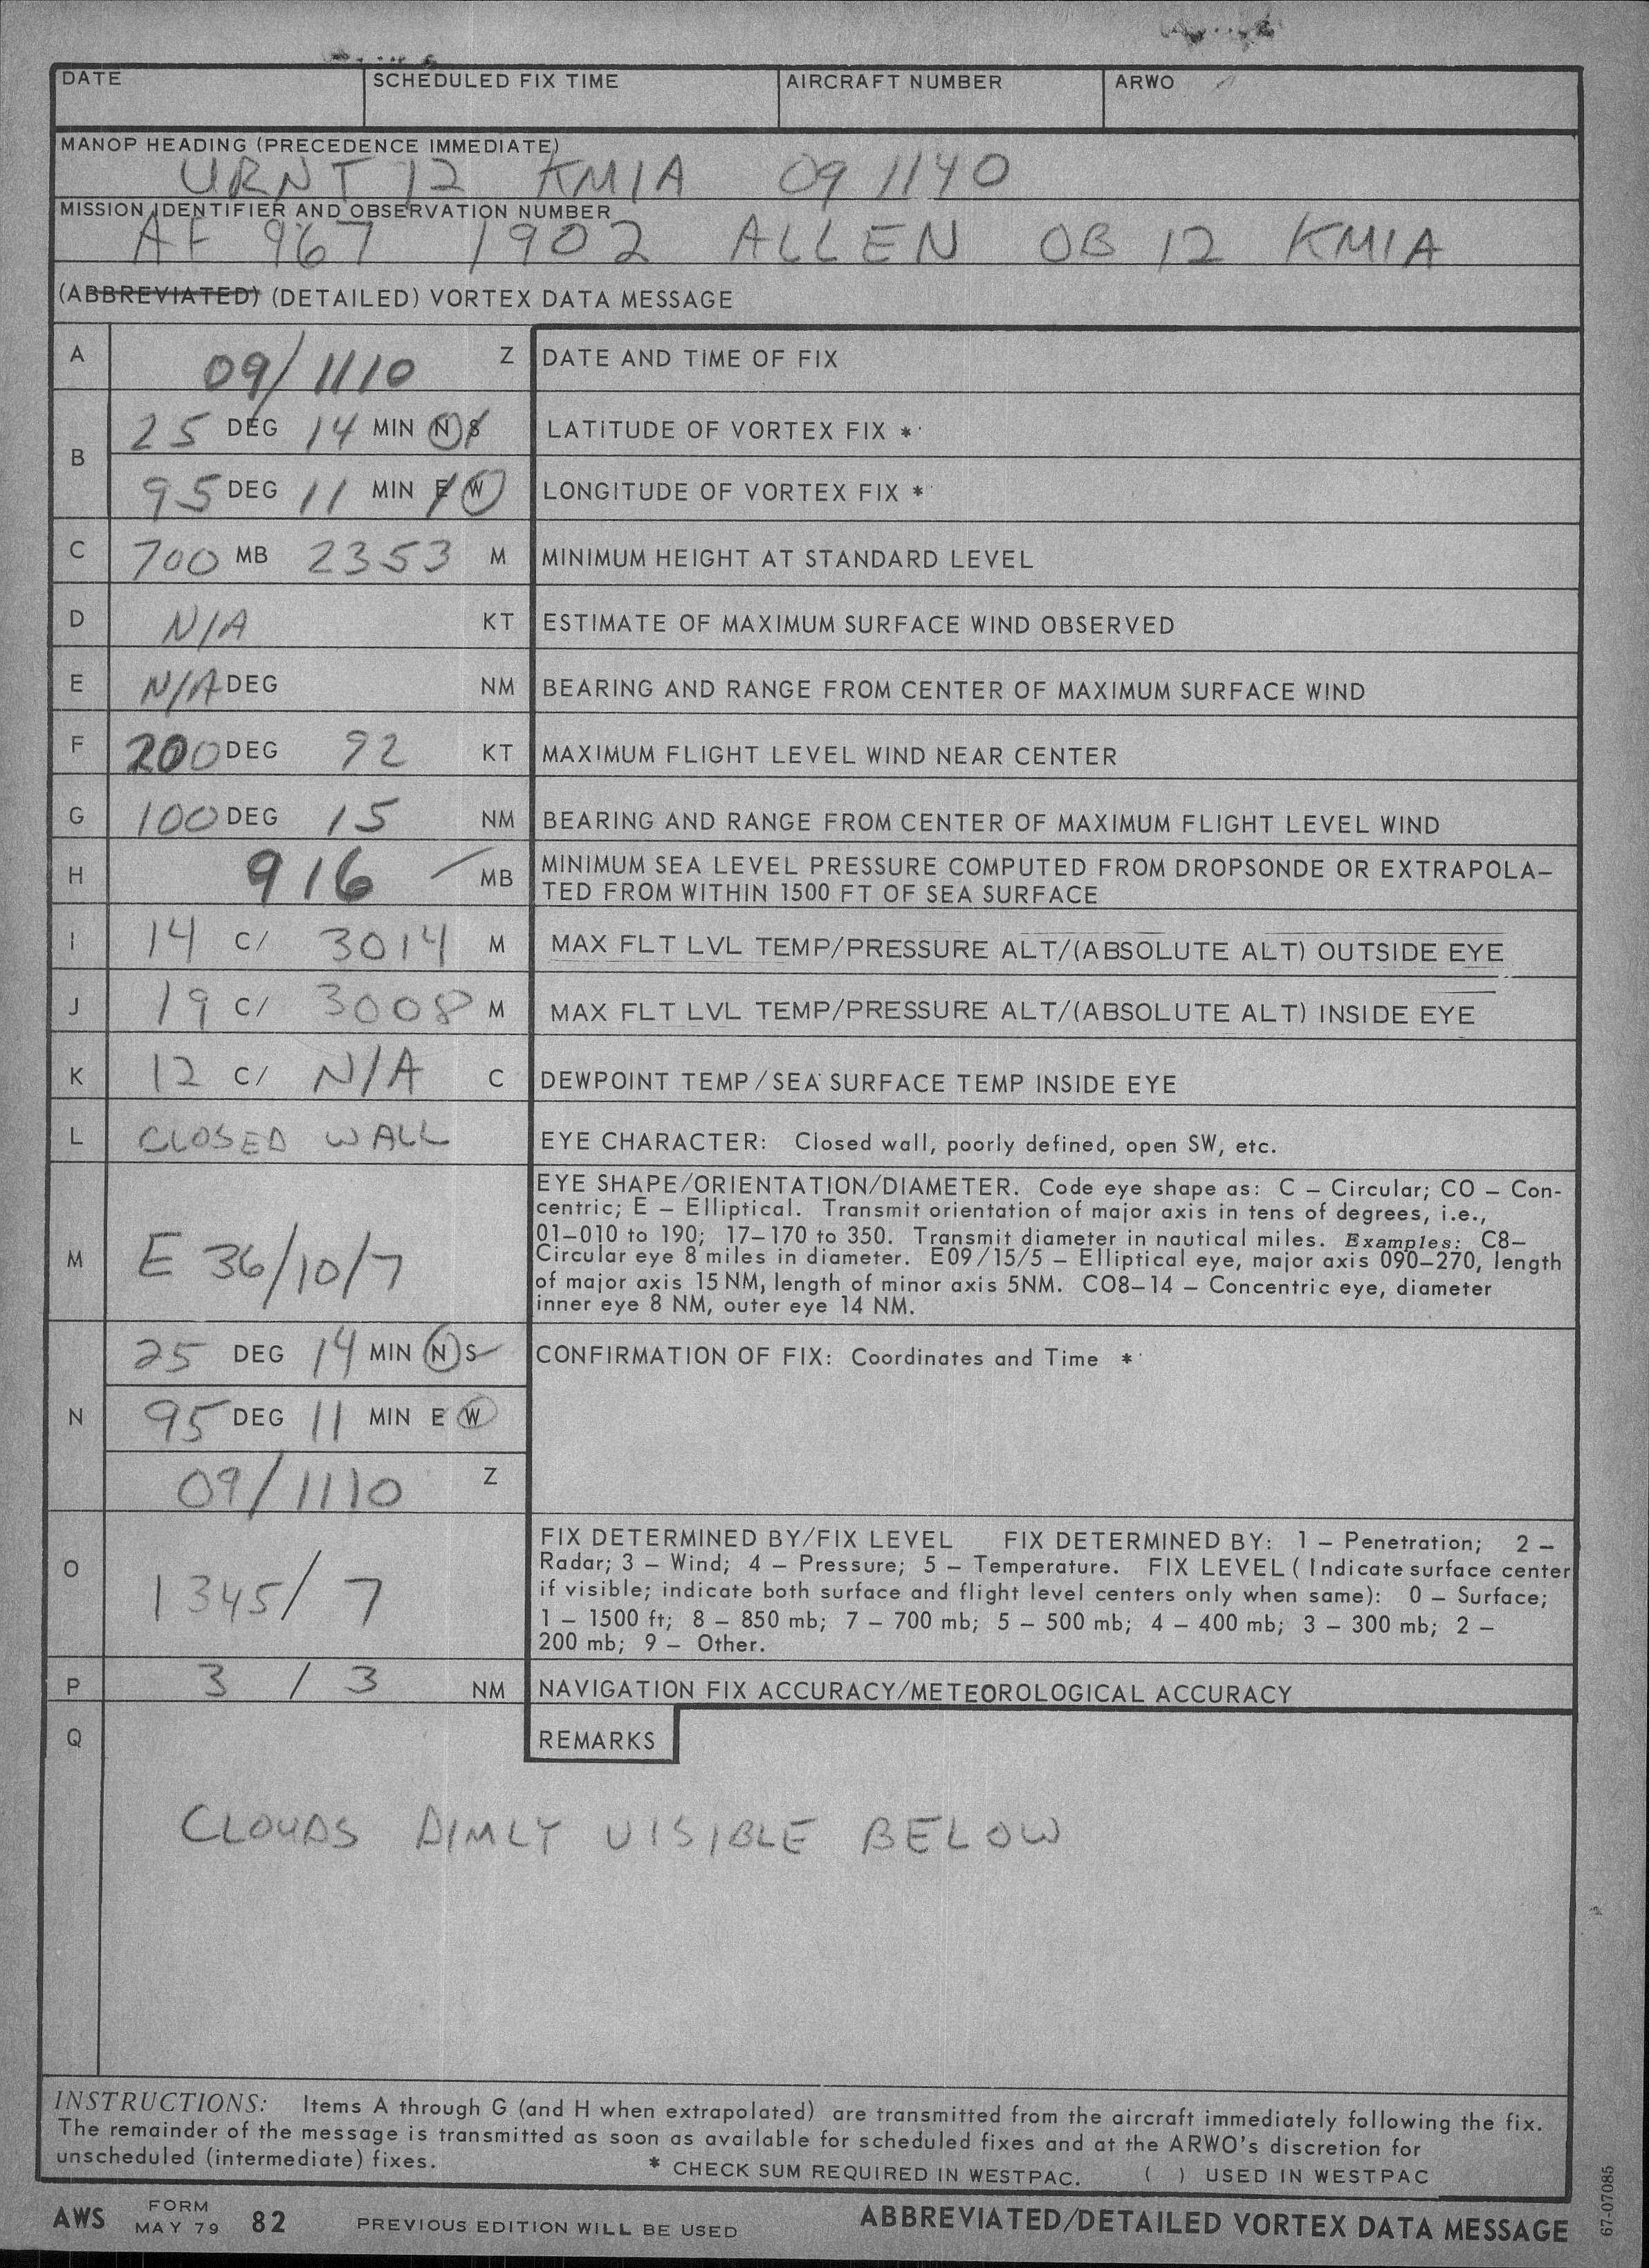 DATE SCHEDULED FIX TIME AIRCRAFT NUMBER ARWO
MANOP HEADING (PRECEDENCE IMMEDIATE)
URNT 12 KMIA 09 1140
MISSION IDENTIFIER AND OBSERVATION NUMBER
AF 967 1902 ALLEN OB 12 KMIA
(ABBREVIATED) (DETAILED) VORTEX DATA MESSAGE
A 09/1110 Z DATE AND TIME OF FIX
B 25 DEG 14 MIN N S LATITUDE OF VORTEX FIX *
95 DEG 11 MIN E W LONGITUDE OF VORTEX FIX *
C 700 MB 2353 M MINIMUM HEIGHT AT STANDARD LEVEL
D N/A KT ESTIMATE OF MAXIMUM SURFACE WIND OBSERVED
E N/A DEG NM BEARING AND RANGE FROM CENTER OF MAXIMUM SURFACE WIND
F 200 DEG 92 KT MAXIMUM FLIGHT LEVEL WIND NEAR CENTER
G 100 DEG 15 NM BEARING AND RANGE FROM CENTER OF MAXIMUM FLIGHT LEVEL WIND
H 916 MB MINIMUM SEA LEVEL PRESSURE COMPUTED FROM DROPSONDE OR EXTRAPOLA-
TED FROM WITHIN 1500 FT OF SEA SURFACE
I 14 C/ 3014 M MAX FLT LVL TEMP/PRESSURE ALT/(ABSOLUTE ALT) OUTSIDE EYE
J 19 C/ 3008 M MAX FLT LVL TEMP/PRESSURE ALT/(ABSOLUTE ALT) INSIDE EYE
K 12 C/ N/A C DEWPOINT TEMP/SEA SURFACE TEMP INSIDE EYE
L CLOSED WALL EYE CHARACTER: Closed wall, poorly defined, open SW, etc.
M E 36/10/7 EYE SHAPE/ORIENTATION/DIAMETER. Code eye shape as: C – Circular; CO – Con-
centric; E – Elliptical. Transmit orientation of major axis in tens of degrees, i.e.,
01–010 to 190; 17–170 to 350. Transmit diameter in nautical miles. Examples: C8–
Circular eye 8 miles in diameter. E09/15/5 – Elliptical eye, major axis 090–270, length
of major axis 15 NM, length of minor axis 5NM. CO8–14 – Concentric eye, diameter
inner eye 8 NM, outer eye 14 NM.
N 25 DEG 14 MIN N S CONFIRMATION OF FIX: Coordinates and Time *
95 DEG 11 MIN E W
09/1110 Z
O 1345/7 FIX DETERMINED BY/FIX LEVEL FIX DETERMINED BY: 1 – Penetration; 2 –
Radar; 3 – Wind; 4 – Pressure; 5 – Temperature. FIX LEVEL (Indicate surface center
if visible; indicate both surface and flight level centers only when same): 0 – Surface;
1 – 1500 ft; 8 – 850 mb; 7 – 700 mb; 5 – 500 mb; 4 – 400 mb; 3 – 300 mb; 2 –
200 mb; 9 – Other.
P 3 / 3 NM NAVIGATION FIX ACCURACY/METEOROLOGICAL ACCURACY
Q REMARKS
CLOUDS DIMLY VISIBLE BELOW
INSTRUCTIONS: Items A through G (and H when extrapolated) are transmitted from the aircraft immediately following the fix.
The remainder of the message is transmitted as soon as available for scheduled fixes and at the ARWO's discretion for
unscheduled (intermediate) fixes. * CHECK SUM REQUIRED IN WESTPAC. ( ) USED IN WESTPAC
AWS FORM MAY 79 82 PREVIOUS EDITION WILL BE USED ABBREVIATED/DETAILED VORTEX DATA MESSAGE
67-07085